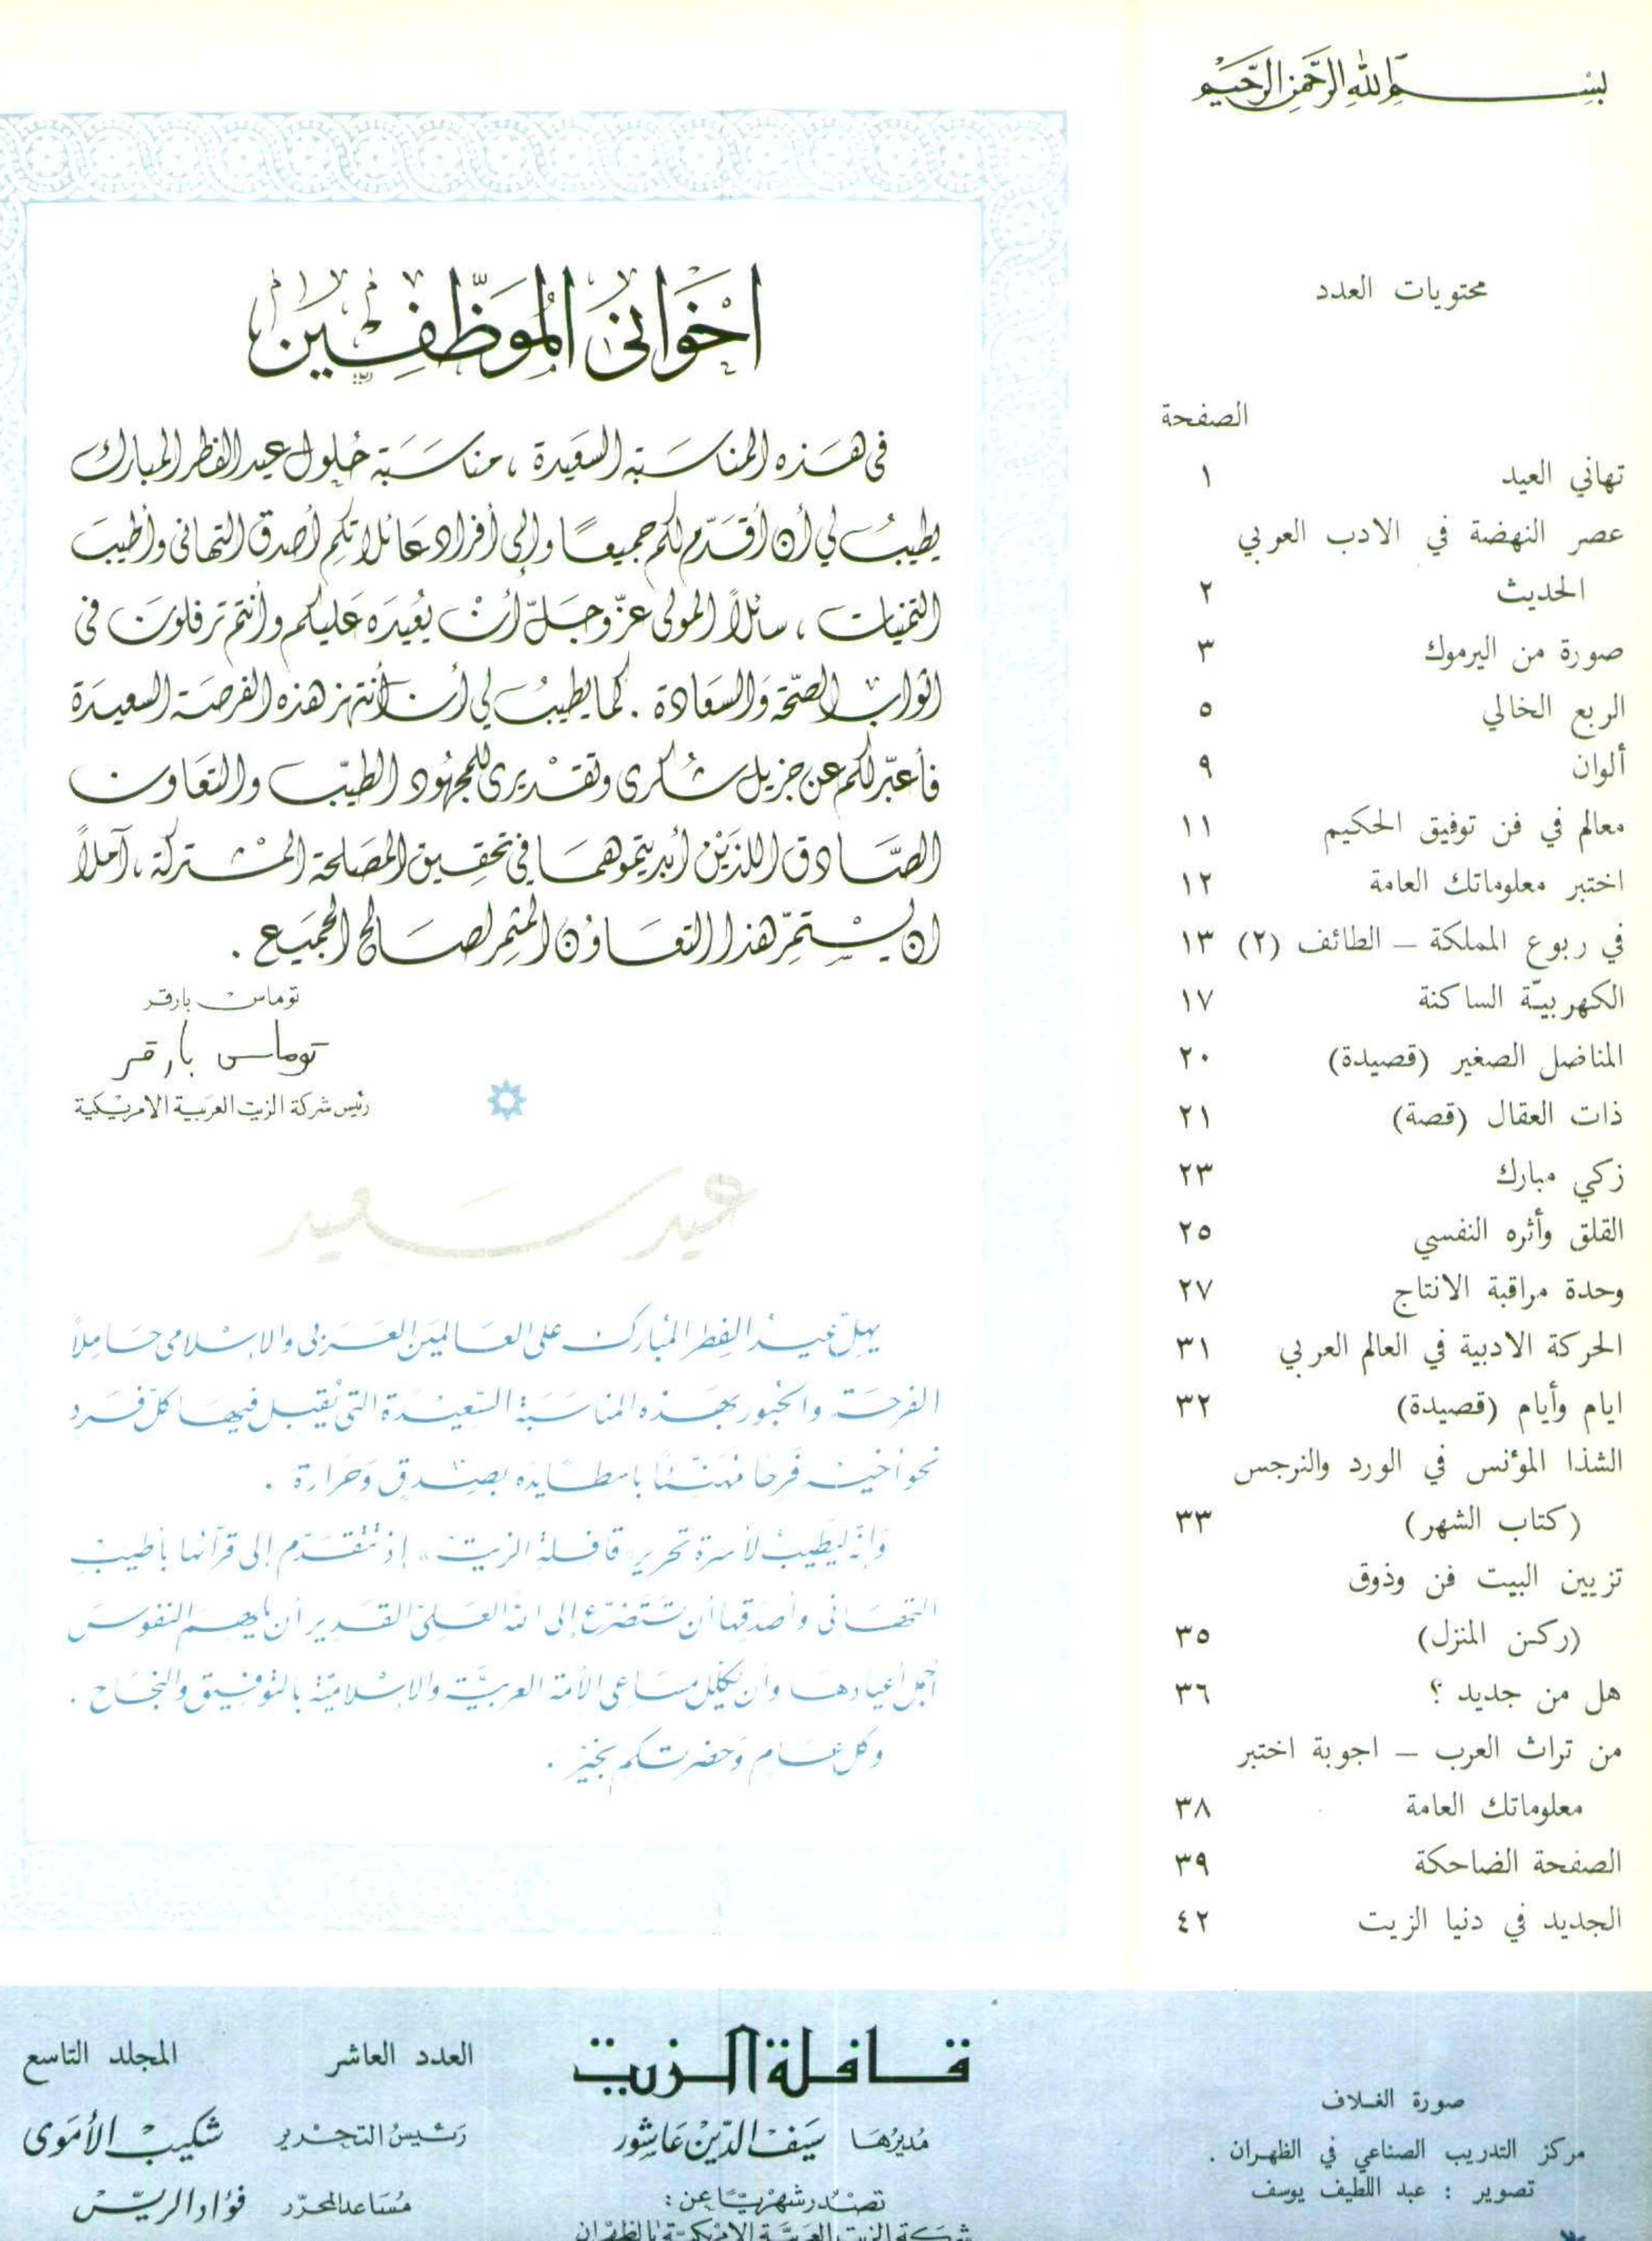 بسم الله الرحمن الرحيم
محتويات العدد
الصفحة
تهاني العيد ١
عصر النهضة في الادب العربي
الحديث ٢
صورة من اليرموك ٣
الربع الخالي ٥
ألوان ٩
معالم في فن توفيق الحكيم ١١
اختبر معلوماتك العامة ١٢
في ربوع المملكة – الطائف (٢) ١٣
الكهربيّة الساكنة ١٧
المناضل الصغير (قصيدة) ٢٠
ذات العقال (قصة) ٢١
زكي مبارك ٢٣
القلق وأثره النفسي ٢٥
وحدة مراقبة الانتاج ٢٧
الحركة الادبية في العالم العربي ٣١
ايام وأيام (قصيدة) ٣٢
الشذا المؤنس في الورد والنرجس
(كتاب الشهر) ٣٣
تزيين البيت فن وذوق
(ركن المنزل) ٣٥
هل من جديد ؟ ٣٦
من تراث العرب – اجوبة اختبر
معلوماتك العامة ٣٨
الصفحة الضاحكة ٣٩
الجديد في دنيا الزيت ٤٢
اخواني الموظفين
في هذه المناسبة السعيدة ، مناسبة حلول عيد الفطر المبارك
يطيب لي أن أقدّم لكم جميعًا وإلى أفراد عائلاتكم أصدق التهاني وأطيب
التمنيات ، سائلاً المولى عزّ وجلّ أن يعيده عليكم وأنتم ترفلون في
اثواب الصحّة والسعادة . كما يطيب لي أن أنتهز هذه الفرصة السعيدة
فأعبّر لكم عن جزيل شكرى وتقديرى للمجهود الطيّب والتعاون
الصّادق اللذين أبديتموهما في تحقيق المصلحة المشتركة ، آملاً
ان يستمرّ هذا التعاون المثمر لصالح الجميع .
توماس بارقر
توماس بارقر
رئيس شركة الزيت العربية الامريكية
عيد سعيد
يهلّ عيد الفطر المبارك على العالمين العربي والاسلامي حاملاً
الفرحة والحبور بهذه المناسبة السّعيدة التي يُقبل فيها كلّ فرد
نحو أخيه فرحا مهنّئا بصدق وحرارة .
وإنّه ليطيب لأسرة تحرير "قافلة الزيت" إذ تتقدّم إلى قرّائها بأطيب
التهاني وأصدقها أن تتضرّع إلى الله العليّ القدير أن يلهم النفوس
أجمل أعيادها وأن يكلّل مساعي الأمّة العربيّة والاسلاميّة بالتوفيق والنجاح .
وكل عام وحضرتكم بخير .
صورة الغلاف
مركز التدريب الصناعي في الظهران .
تصوير : عبد اللطيف يوسف
قافلة الزيت
مديرها سيف الدّين عاشور
تصدر شهريًّا عن :
شركة الزيت العربيّة الامريكيّة بالظهران
العدد العاشر المجلد التاسع
رئيس التحرير شكيب الأموى
مساعد المحرّر فؤاد الريّس